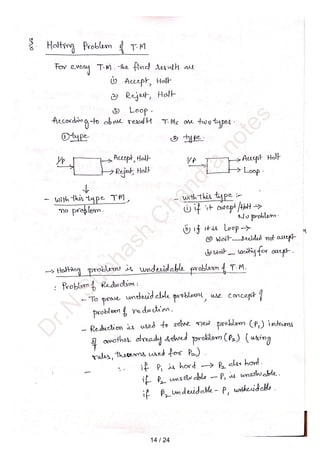 Halting Problem of T-M
For every T.M. the final results are
① Accept, Halt
② Reject, Halt
③ Loop.
According to above results T.Ms are two types.
① type
② type.
I/P → Accept, Halt
→ Reject, Halt
I/P → Accept Halt
→ Loop.
- with this type TM,
no problem.
- with this type :-
① if it accept/Halt →
No problem.
② if it is Loop →
ⓐ wait — decided not accept
ⓑ wait — waiting for accept.
→ Halting problem is undecidable problem of T.M.
: Problem of Reduction :
- To prove undecidable problem, use concept of
problem of reduction.
- Reduction is used to solve new problem (P₁) interms
of another already solved problem (P₂) (using
rules, Theorems used for P₂)
∴ if P₁ is hard → P₂ also hard.
if P₂ unsolvable – P₁ is unsolvable.
if P₂ undecidable – P₁ undecidable.
Chandra notes
14 / 24